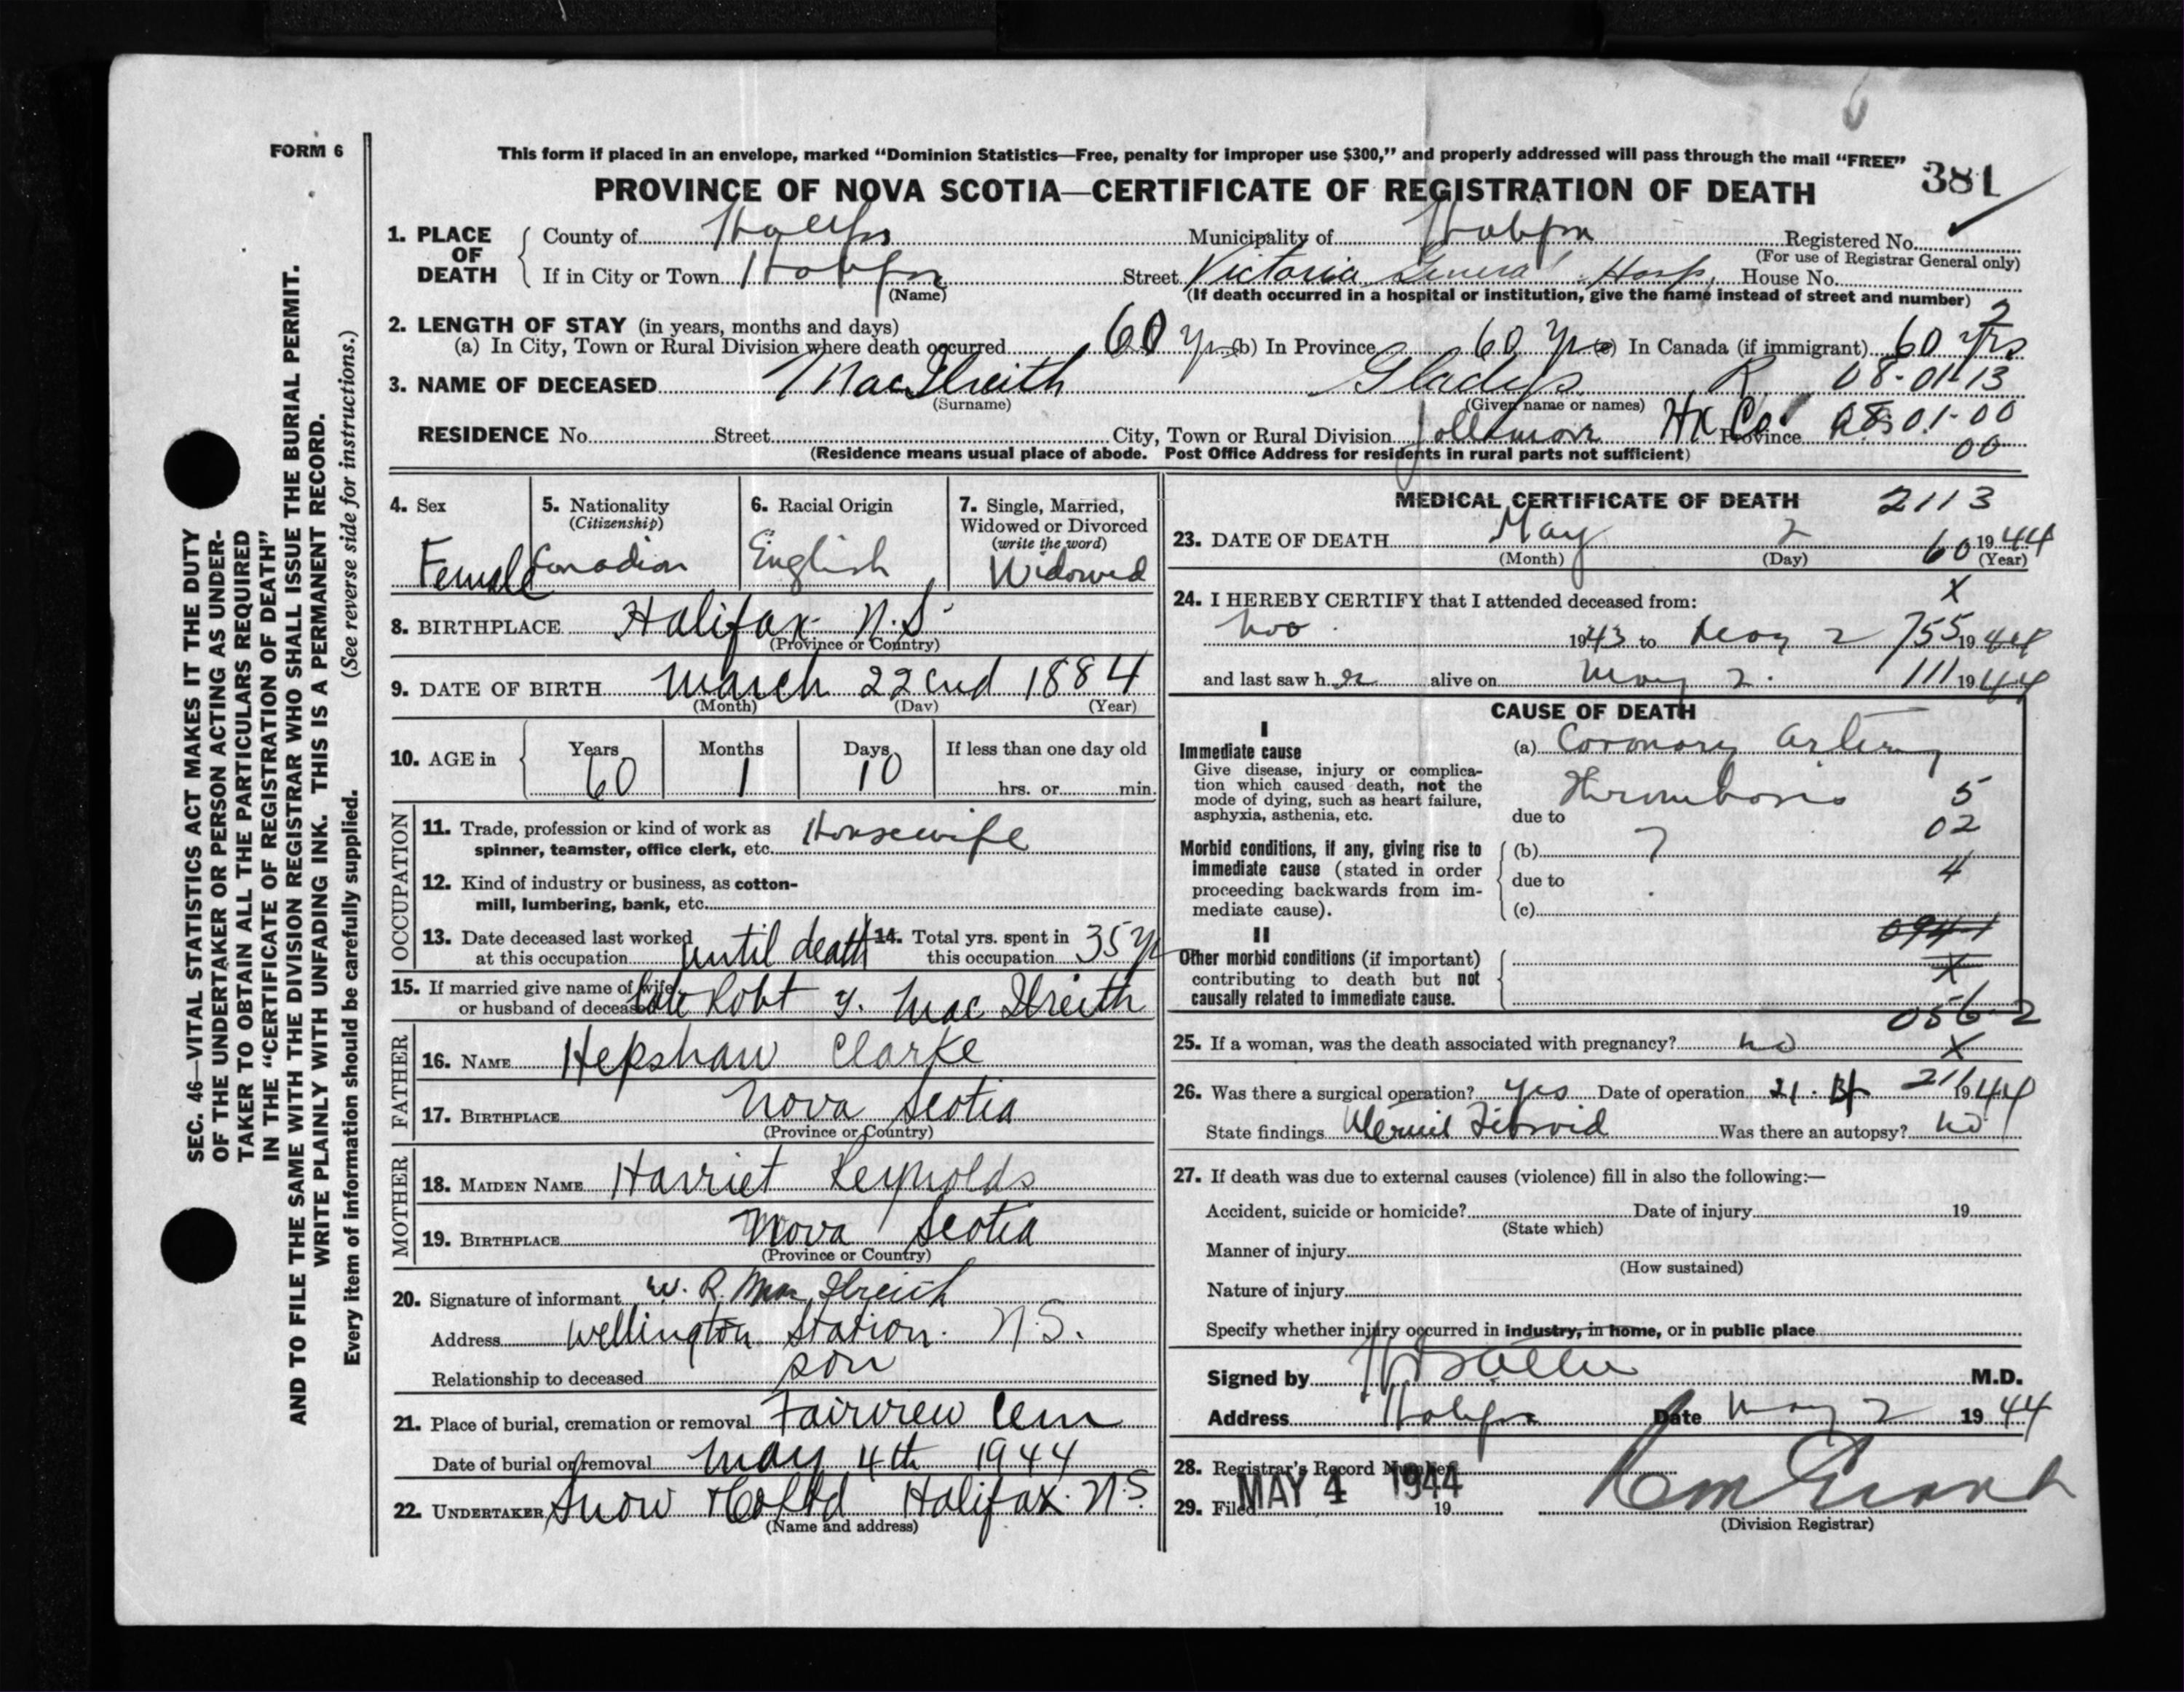 FORM 6
This form if placed in an envelope, marked “Dominion Statistics—Free, penalty for improper use $300,” and properly addressed will pass through the mail “FREE”
381
PROVINCE OF NOVA SCOTIA—CERTIFICATE OF REGISTRATION OF DEATH
1. PLACE OF DEATH County of Halifax Municipality of Halifax Registered No.
(For use of Registrar General only)
If in City or Town Halifax Street Victoria General Hosp. House No.
(Name) (If death occurred in a hospital or institution, give the name instead of street and number)
2
2. LENGTH OF STAY (in years, months and days)
(a) In City, Town or Rural Division where death occurred 60 yrs (b) In Province 60 yrs (c) In Canada (if immigrant) 60 yrs
3. NAME OF DECEASED MacIlreith Gladys R 08-01-13
(Surname) (Given name or names)
RESIDENCE No. Street City, Town or Rural Division Jollimore Hx Co. Province 08-01-00
(Residence means usual place of abode. Post Office Address for residents in rural parts not sufficient) 00
4. Sex Female
5. Nationality (Citizenship) Canadian
6. Racial Origin English
7. Single, Married, Widowed or Divorced (write the word) Widowed
8. BIRTHPLACE Halifax N.S.
(Province or Country)
9. DATE OF BIRTH March 22nd 1884
(Month) (Day) (Year)
10. AGE in Years 60 Months 1 Days 10 If less than one day old
hrs. or min.
OCCUPATION
11. Trade, profession or kind of work as Housewife
spinner, teamster, office clerk, etc.
12. Kind of industry or business, as cotton-
mill, lumbering, bank, etc.
13. Date deceased last worked at this occupation until death 14. Total yrs. spent in this occupation 35 yr
15. If married give name of wife or husband of deceased late Robt MacIlreith
FATHER
16. NAME Hepshaw Clarke
17. BIRTHPLACE Nova Scotia
(Province or Country)
MOTHER
18. MAIDEN NAME Harriet Reynolds
19. BIRTHPLACE Nova Scotia
(Province or Country)
20. Signature of informant W. R. MacIlreith
Address Wellington Station. N.S.
Relationship to deceased son
21. Place of burial, cremation or removal Fairview Cem
Date of burial or removal May 4th 1944
22. UNDERTAKER Snow & Co Ltd Halifax. N.S.
(Name and address)
MEDICAL CERTIFICATE OF DEATH 2113
23. DATE OF DEATH May 2 60 1944
(Month) (Day) (Year)
X
24. I HEREBY CERTIFY that I attended deceased from:
Nov 1943 to May 2 755 1944
and last saw her alive on May 2. 111 1944
CAUSE OF DEATH
I
Immediate cause (a) Coronary artery
Give disease, injury or complica-
tion which caused death, not the
mode of dying, such as heart failure,
asphyxia, asthenia, etc.
Thrombosis 5
due to 02
Morbid conditions, if any, giving rise to
immediate cause (stated in order
proceeding backwards from im-
mediate cause).
(b) ?
due to 4
(c)
094-1
II
Other morbid conditions (if important)
contributing to death but not
causally related to immediate cause.
X
056-2
25. If a woman, was the death associated with pregnancy? no X
26. Was there a surgical operation? yes Date of operation 21. 211944
State findings Fibroid Was there an autopsy? no
27. If death was due to external causes (violence) fill in also the following:—
Accident, suicide or homicide? Date of injury 19
(State which)
Manner of injury
(How sustained)
Nature of injury
Specify whether injury occurred in industry, in home, or in public place
Signed by M.D.
Address Halifax Date May 2 1944
28. Registrar's Record Number
29. Filed MAY 4 1944 19
(Division Registrar)
SEC. 46—VITAL STATISTICS ACT MAKES IT THE DUTY
OF THE UNDERTAKER OR PERSON ACTING AS UNDER-
TAKER TO OBTAIN ALL THE PARTICULARS REQUIRED
IN THE “CERTIFICATE OF REGISTRATION OF DEATH”
AND TO FILE THE SAME WITH THE DIVISION REGISTRAR WHO SHALL ISSUE THE BURIAL PERMIT.
WRITE PLAINLY WITH UNFADING INK. THIS IS A PERMANENT RECORD.
Every item of information should be carefully supplied. (See reverse side for instructions.)